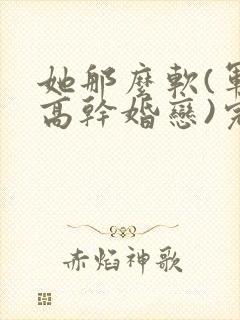 她那麼軟(軍
高幹婚戀)完
赤焰神歌